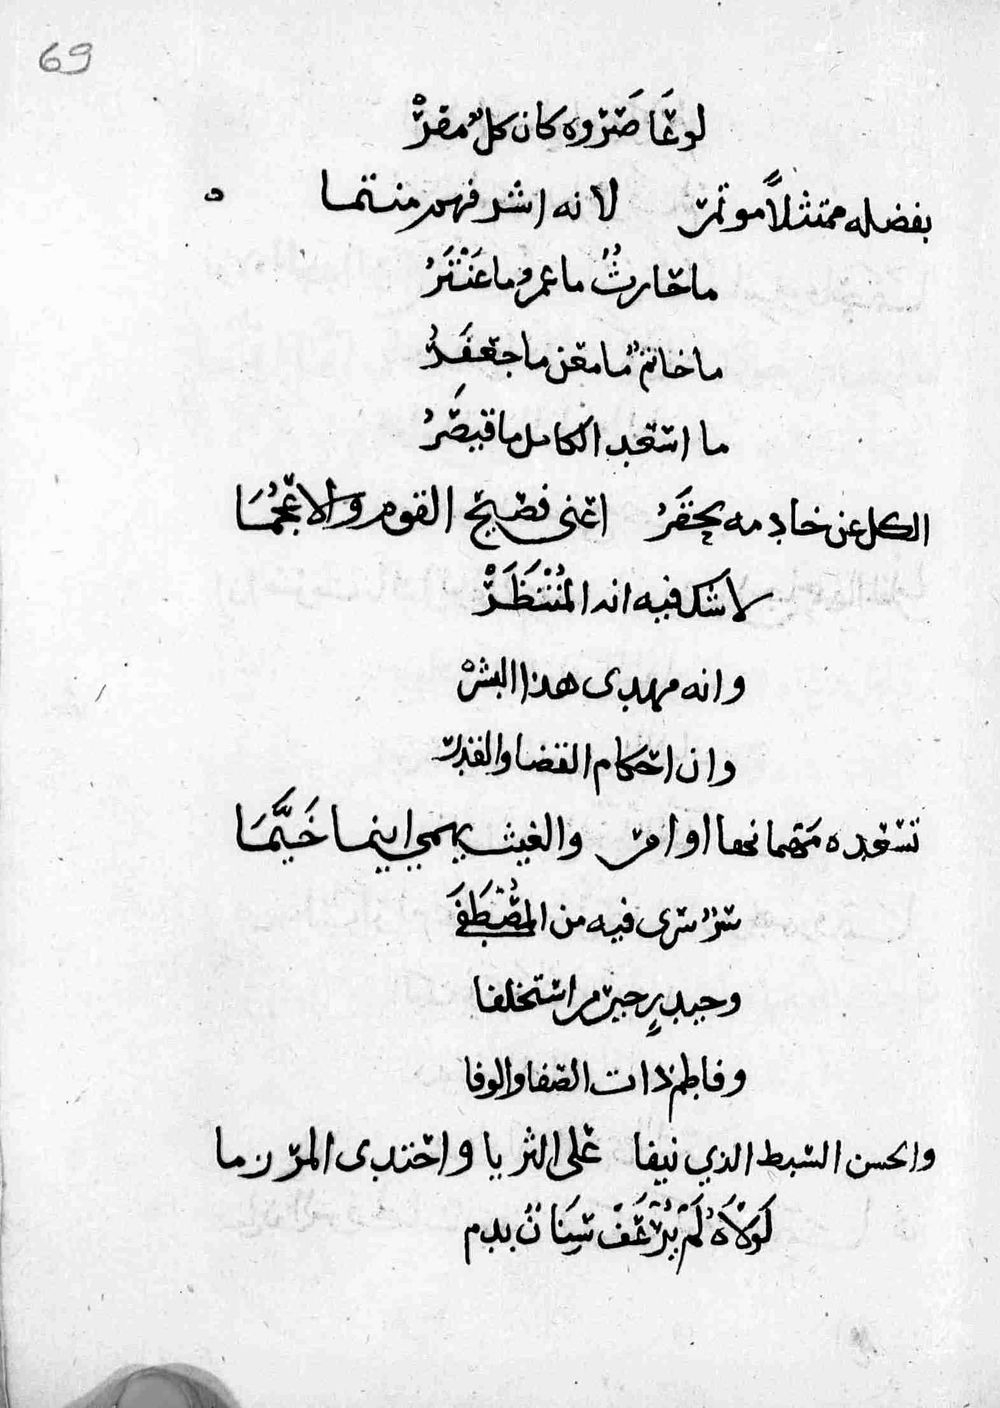 69
لو عَاصَرُوه كان كلٌ مقرّْ
بفضله ممتثلاً موتمرّ لانه اشرفهم منتما ه
ما حارثُ ما عمرو ما عَنْتَرُ
ما خاتمٌ ما معن ما جعفَرُ
ما اسعد الكامل ما قيصَرُ
الكل عن خادمه يحقَرُ اعنى فصيح القوم والاعجُمَا
لا شك فيه انه المُنْتَظَرْ
وانه مهدى هذا البشرْ
وان احكام القضا والقدر
تسعده مَهما نحا او امر والغيث يهمي اينما خَيَّمَا
سرٌ سرى فيه من المُصْطَفَى
وحيدرٍ خير من استخلفا
وفاطم ذات الصفا والوفا
والحسن السبط الذي نيفا على الثريا واحتدى المرزما
لَوْلَاهُ لَمْ يُرْعَفْ سِنَانٌ بدم